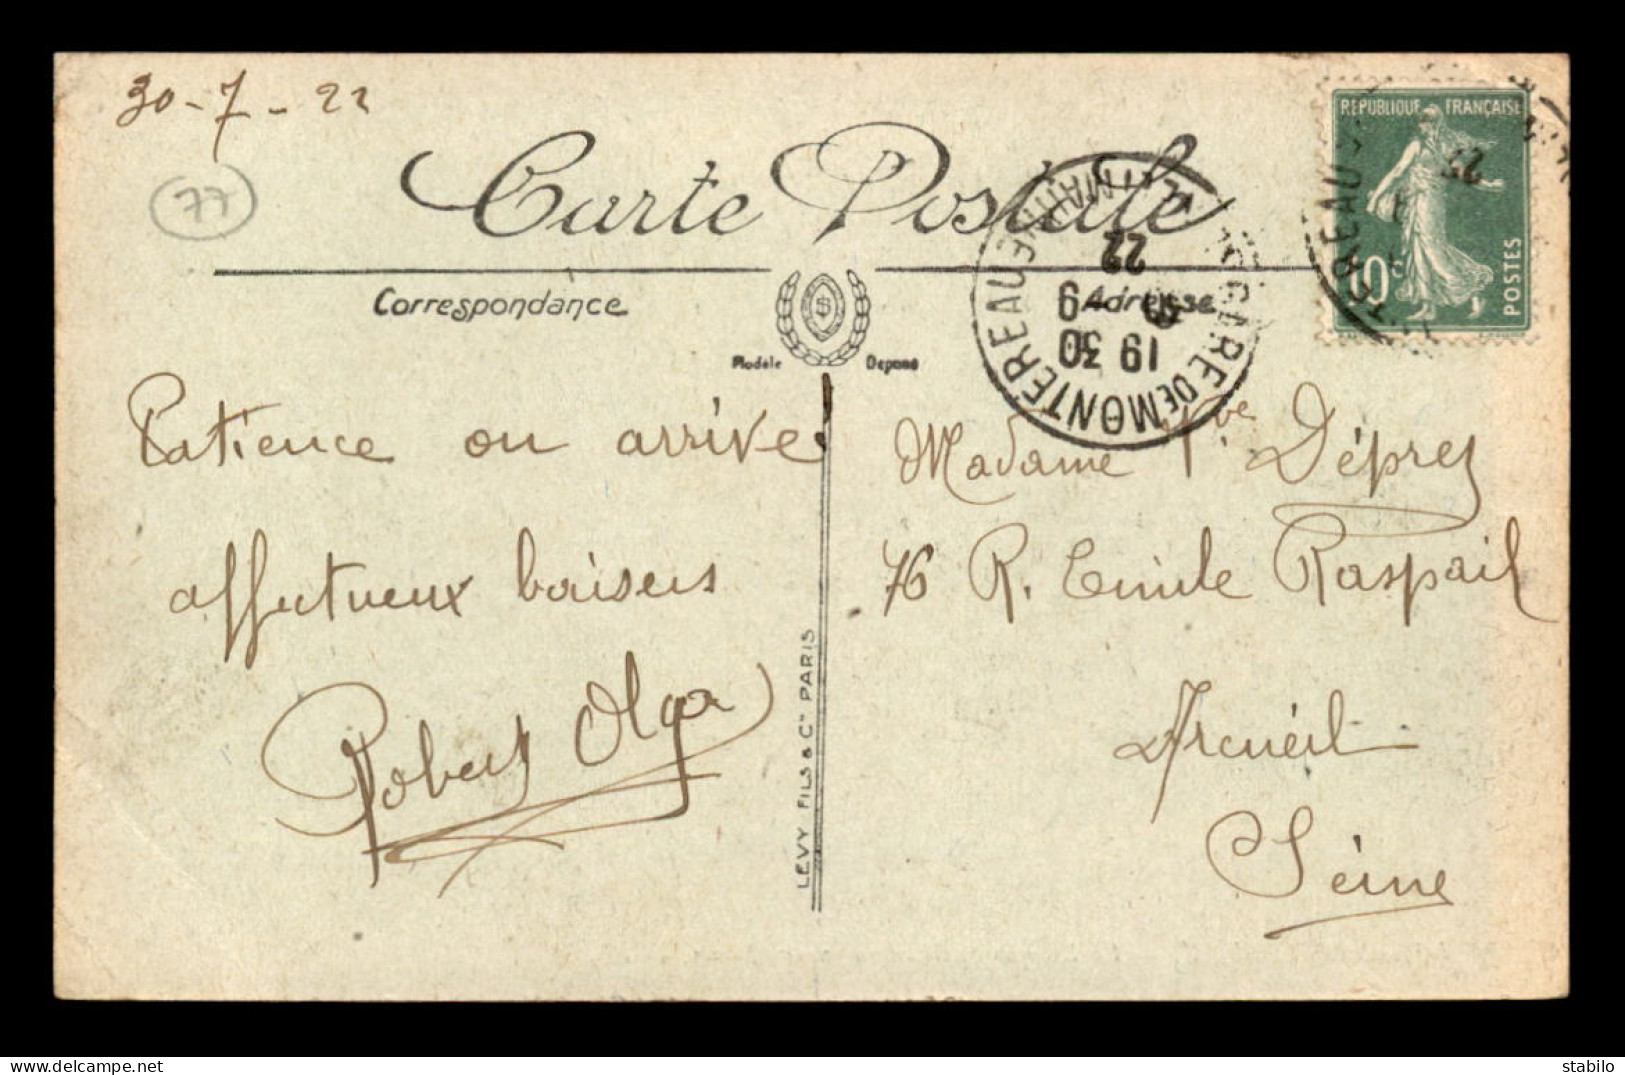 30-7-22
77
Carte Postale
RÉPUBLIQUE FRANÇAISE
10c
POSTES
GARE DE MONTEREAU
SEINE ET MARNE
19 30
9
22
Correspondance
Adresse
Modèle Déposé
Patience on arrive
affectueux baisers
Robert Olga
LEVY FILS & Cie PARIS
Madame Vve Déprez
76 R. Emile Raspail
Arcueil
Seine
stabilo